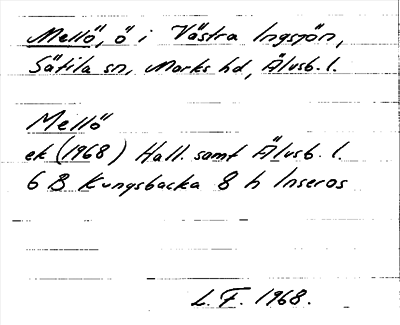 Mellö, ö i Västra Ingsjön,
Sätila sn, Marks hd, Älvsb. l.
Mellö
ek (1968) Hall. samt Älvsb. l.
6 B Kungsbacka 8 h Inseros
L. F. 1968.